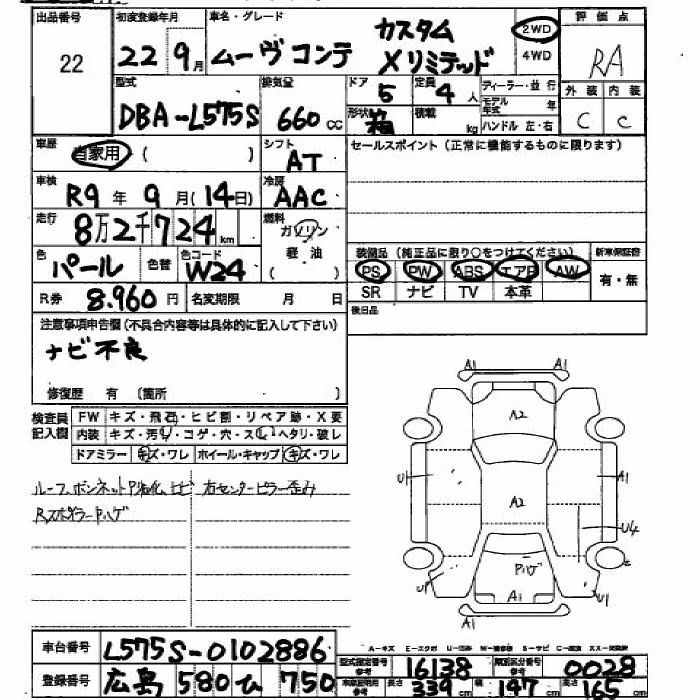 出品番号 22
初度登録年月 22 9月
車名・グレード ムーヴ コンテ カスタム Xリミテッド
2WD 4WD
評価点 RA
型式 DBA-L575S
排気量 660 cc
ドア 5
定員 4 人
形状 箱
積載 kg
ディーラー・並行
モデル年式 年
ハンドル 左・右
外装 内装
C C
車歴 自家用 ( )
シフト AT
セールスポイント (正常に機能するものに限ります)
車検 R9 年 9 月(14日)
冷房 AAC
走行 8万2千724 km
燃料 ガソリン 軽油 ( )
色 パール
色替
色コード W24
装備品 (純正品に限り○をつけてください)
新車保証書
PS PW ABS エアB AW
有・無
SR ナビ TV 本革
R券 8.960 円
名変期限 月 日
後日品
注意事項申告欄(不具合内容等は具体的に記入して下さい)
ナビ不良
修復歴 有 〔箇所 〕
検査員記入欄
FW キズ・飛石・ヒビ割・リペア跡・X要
内装 キズ・汚れ・コゲ・穴・スレ・ヘタリ・破レ
ドアミラー キズ・ワレ ホイール・キャップ キズ・ワレ
右センターピラー歪み
A1 A1
A2
U1 A1
A2
U4
Pハゲ
U1 A1 U1
A1
A-キズ E-エクボ
車台番号 L575S-0102886
型式指定番号 16138
類別区分番号 0028
登録番号 広島 580 ひ 750
長さ 339 cm 幅 147 cm 高さ 165 cm